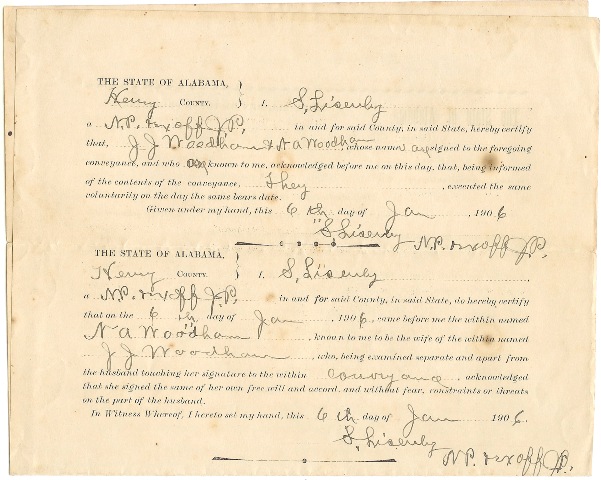 THE STATE OF ALABAMA,
Henry COUNTY. } I, S, Lisenby
a N.P. & ex off J.P, in and for said County, in said State, hereby certify
that, J J Woodham & N A Woodham, whose name are signed to the foregoing
conveyance, and who are known to me, acknowledged before me on this day, that, being informed
of the contents of the conveyance, They, executed the same
voluntarily on the day the same bears date.
Given under my hand, this 6 th day of Jan 1906
S, Lisenby N.P. & ex off J.P,
THE STATE OF ALABAMA,
Henry COUNTY. } I, S, Lisenby
a N.P. & ex off J.P, in and for said County, in said State, do hereby certify
that on the 6 th day of Jan, 1906, came before me the within named
N A Woodham, known to me to be the wife of the within named
J J Woodham, who, being examined separate and apart from
the husband touching her signature to the within conveyance, acknowledged
that she signed the same of her own free will and accord, and without fear, constraints or threats
on the part of the husband.
In Witness Whereof, I hereto set my hand, this 6 th day of Jan 1906.
S, Lisenby
N.P. & ex off J.P,